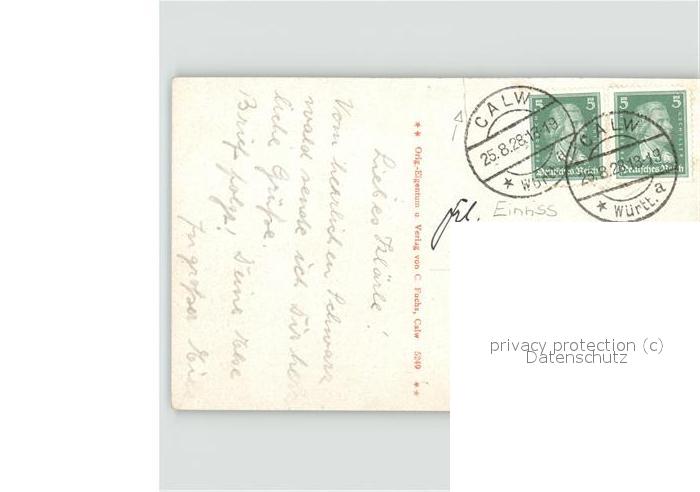 Liebes Klärle!
Vom herrlichen Schwarz
wald sende ich Dir herz
liche Grüße.
Brief folgt! Deine
In großer
★★ Orig.-Eigentum u. Verlag von C. Fuchs, Calw 5249 ★★
5 5
Deutsches Reich
5 5
Deutsches Reich
CALW
25.8.28.18-19
★ Württ. a
CALW
25.8.28.18-19
★ Württ. a
Frl.
privacy protection (c)
Datenschutz